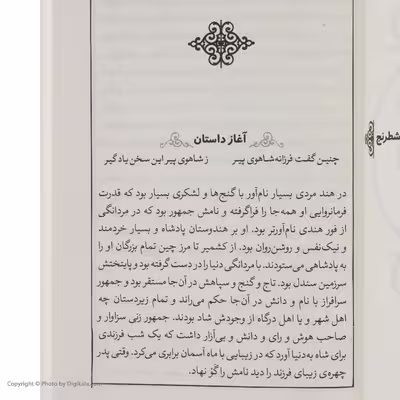 شطرنج
آغاز داستان
چنین گفت فرزانه شاهوی پیر ز شاهوی پیر این سخن یاد گیر
در هند مردی بسیار نام‌آور با گنج‌ها و لشکری بسیار بود که قدرت
فرمانروایی او همه‌جا را فراگرفته و نامش جمهور بود که در مردانگی
از فور هندی نام‌آورتر بود. او بر هندوستان پادشاه و بسیار خردمند
و نیک‌نفس و روشن‌روان بود. از کشمیر تا مرز چین تمام بزرگان او را
به پادشاهی می‌ستودند. با مردانگی دنیا را در دست گرفته بود و پایتختش
سرزمین سندل بود. تاج و گنج و سپاهش در آن‌جا مستقر بود و جمهور
سرافراز با نام و دانش در آن‌جا حکم می‌راند و تمام زیردستان چه
اهل شهر و یا اهل درگاه از وجودش شاد بودند. جمهور زنی سزاوار و
صاحب هوش و رای و دانش و بی‌آزار داشت که یک شب فرزندی
برای شاه به‌دنیا آورد که در زیبایی با ماه آسمان برابری می‌کرد. وقتی پدر
چهره‌ی زیبای فرزند را دید نامش را گَوْ نهاد.
Copyright © Photo by DigiKala.com